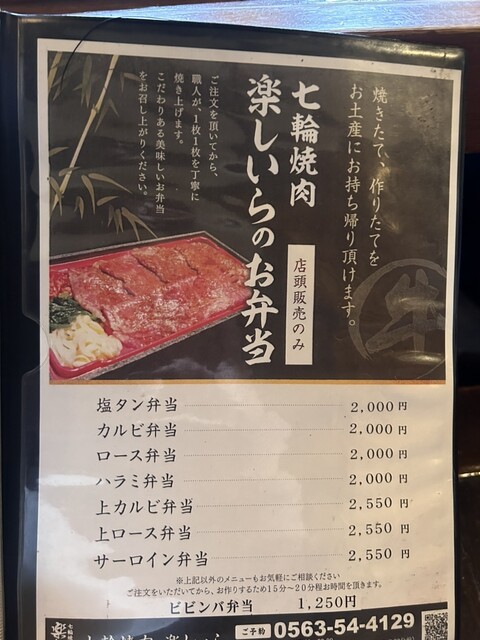 焼きたて、作りたてを
お土産にお持ち帰り頂けます。
七輪焼肉
楽しいらのお弁当
店頭販売のみ
ご注文を頂いてから、
職人が、1枚1枚を丁寧に
焼き上げます。
こだわりある美味しいお弁当
をお召し上がりください。
牛
塩タン弁当 2,000円
カルビ弁当 2,000円
ロース弁当 2,000円
ハラミ弁当 2,000円
上カルビ弁当 2,550円
上ロース弁当 2,550円
サーロイン弁当 2,550円
※上記以外のメニューもお気軽にご相談ください
ご注文をいただいてから、お作りするため15分～20分程お時間を頂きます。
ビビンバ弁当 1,250円
ご予約 0563-54-4129